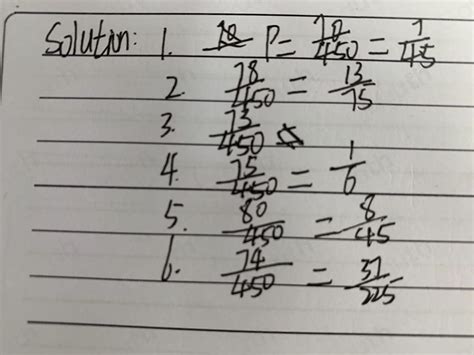 Solution: 1. P = 70/450 = 7/45
2. 78/450 = 13/75
3. 73/450
4. 75/450 = 1/6
5. 80/450 = 8/45
6. 74/450 = 37/225